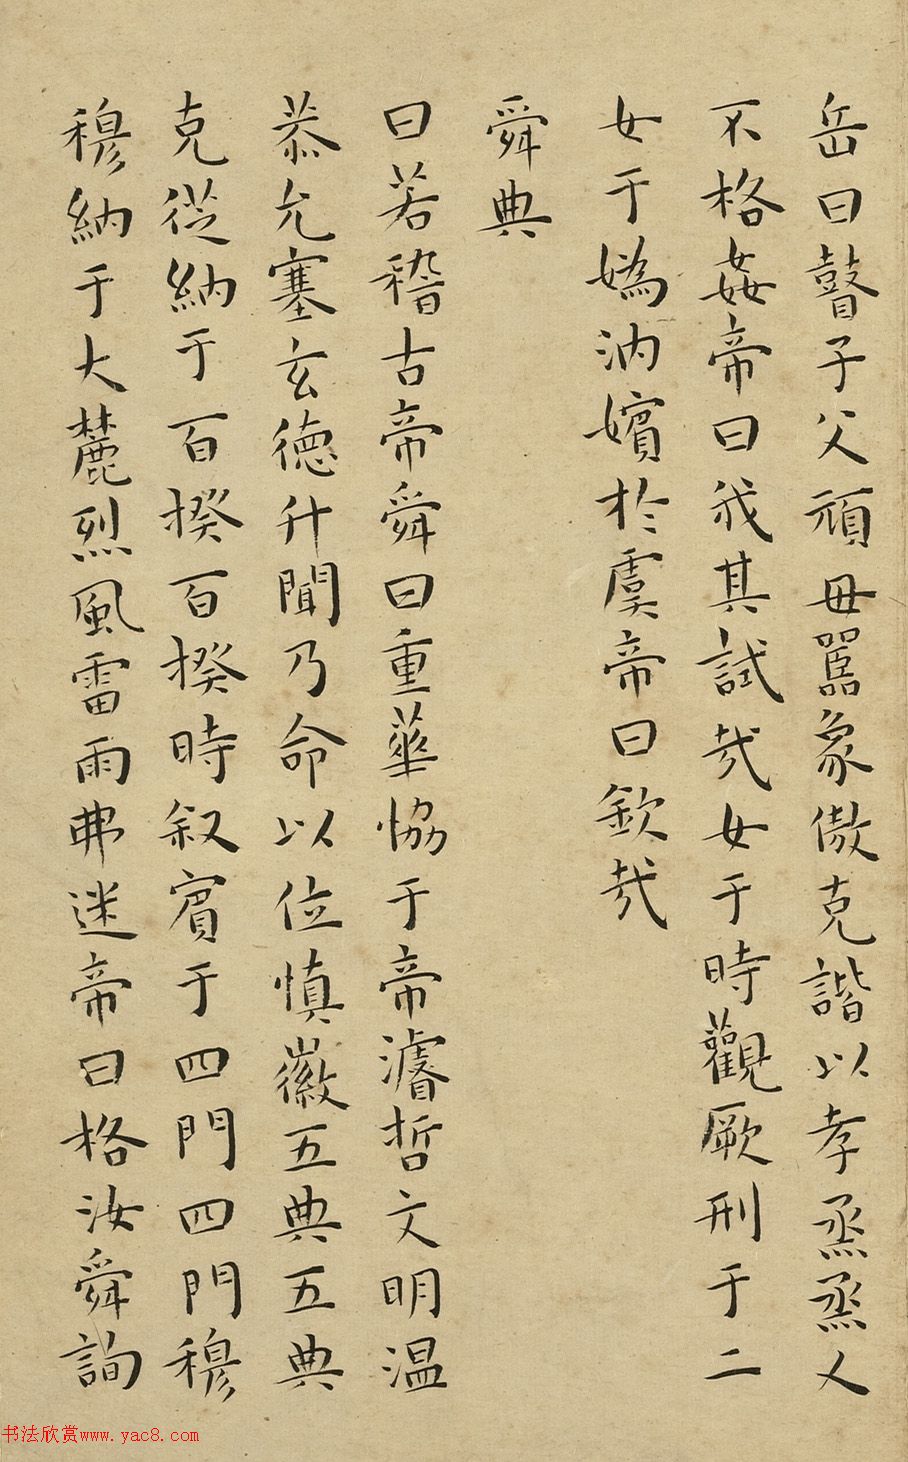 岳曰瞽子父頑母嚚象傲克諧以孝烝烝乂
不格姦帝曰我其試哉女于時觀厥刑于二
女于媯汭嬪於虞帝曰欽哉
舜典
曰若稽古帝舜曰重華協于帝濬哲文明温
恭允塞玄德升聞乃命以位慎徽五典五典
克從納于百揆百揆時叙賓于四門四門穆
穆納于大麓烈風雷雨弗迷帝曰格汝舜詢
书法欣赏www.yac8.com